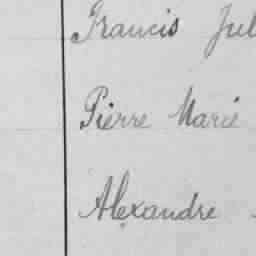 Francis Jul
Pierre Marie
Alexandre